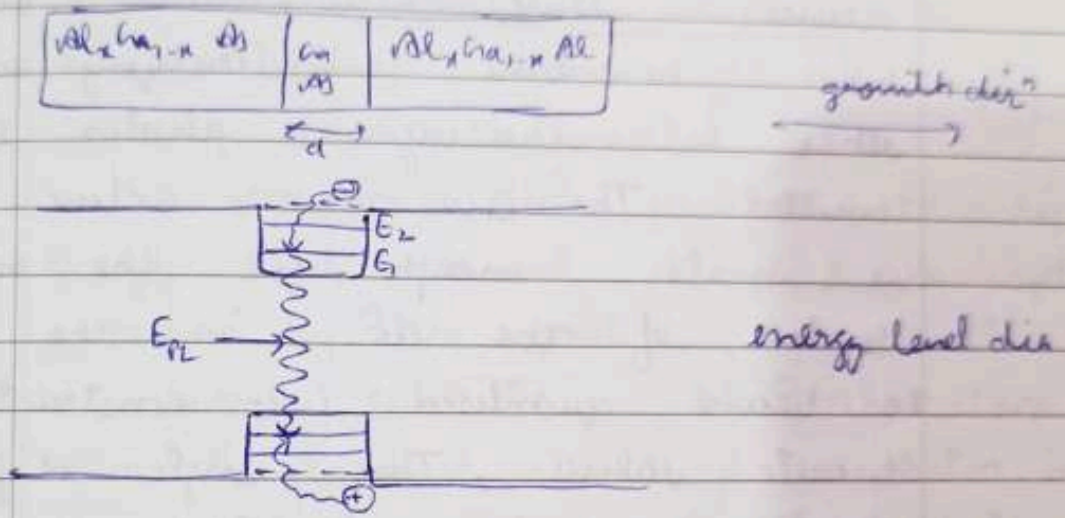 Al_xGa_{1-x} As Ga Al_xGa_{1-x} Al
As
growth dirⁿ
d
⊖
E_2
E_1
E_PL
energy level dia
⊕